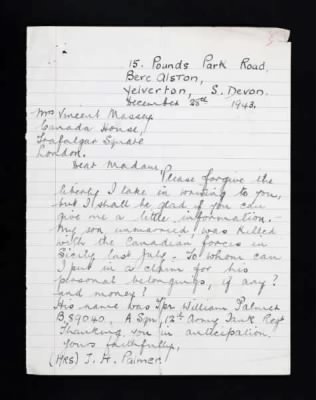 15. Pounds Park Road.
Bere Alston,
Yelverton, S. Devon.
December 28th 1943.
Mrs Vincent Massey
Canada House,
Trafalgar Square
London.
Dear Madam,
Please forgive the
liberty I take in writing to you,
but I shall be glad if you can
give me a little information.
My son unmarried was killed
with the Canadian forces in
Sicily last July. To whom can
I put in a claim for his
personal belongings, if any?
and money?
His name was Tpr William Palmer
B.59040. A Sqn, 12th Army Tank Regt
Thanking you in anticipation.
Yours faithfully,
(Mrs) J. H. Palmer